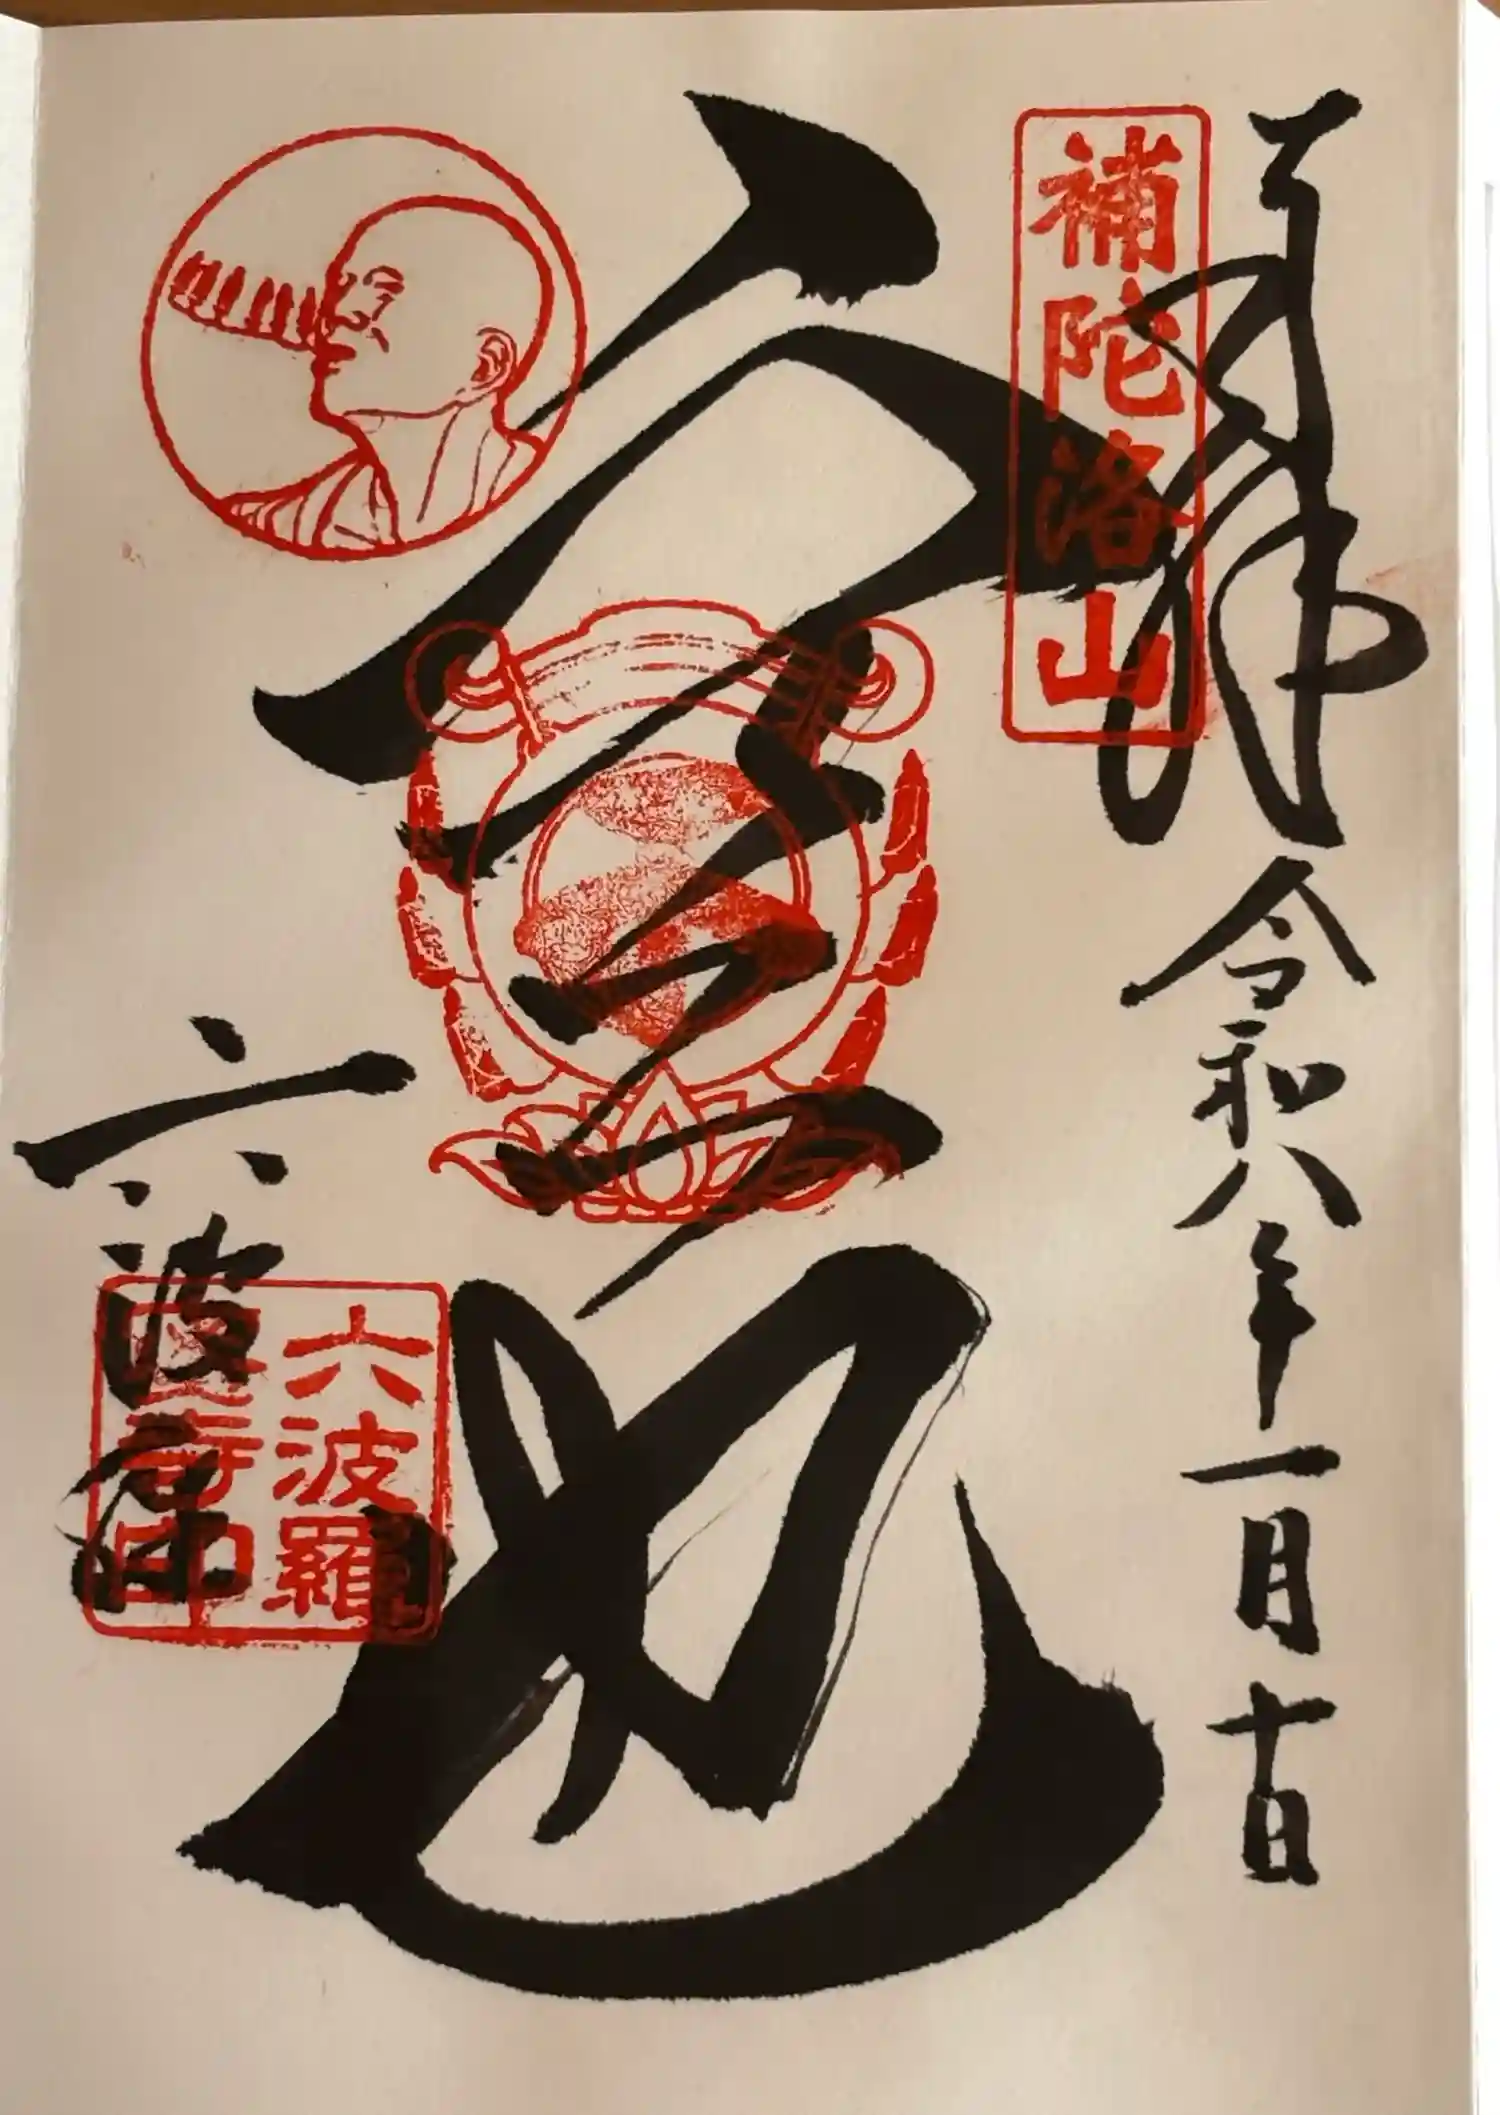 奉拝 令和八年一月十日
補陀洛山
空也
六波
六波羅
蜜寺印